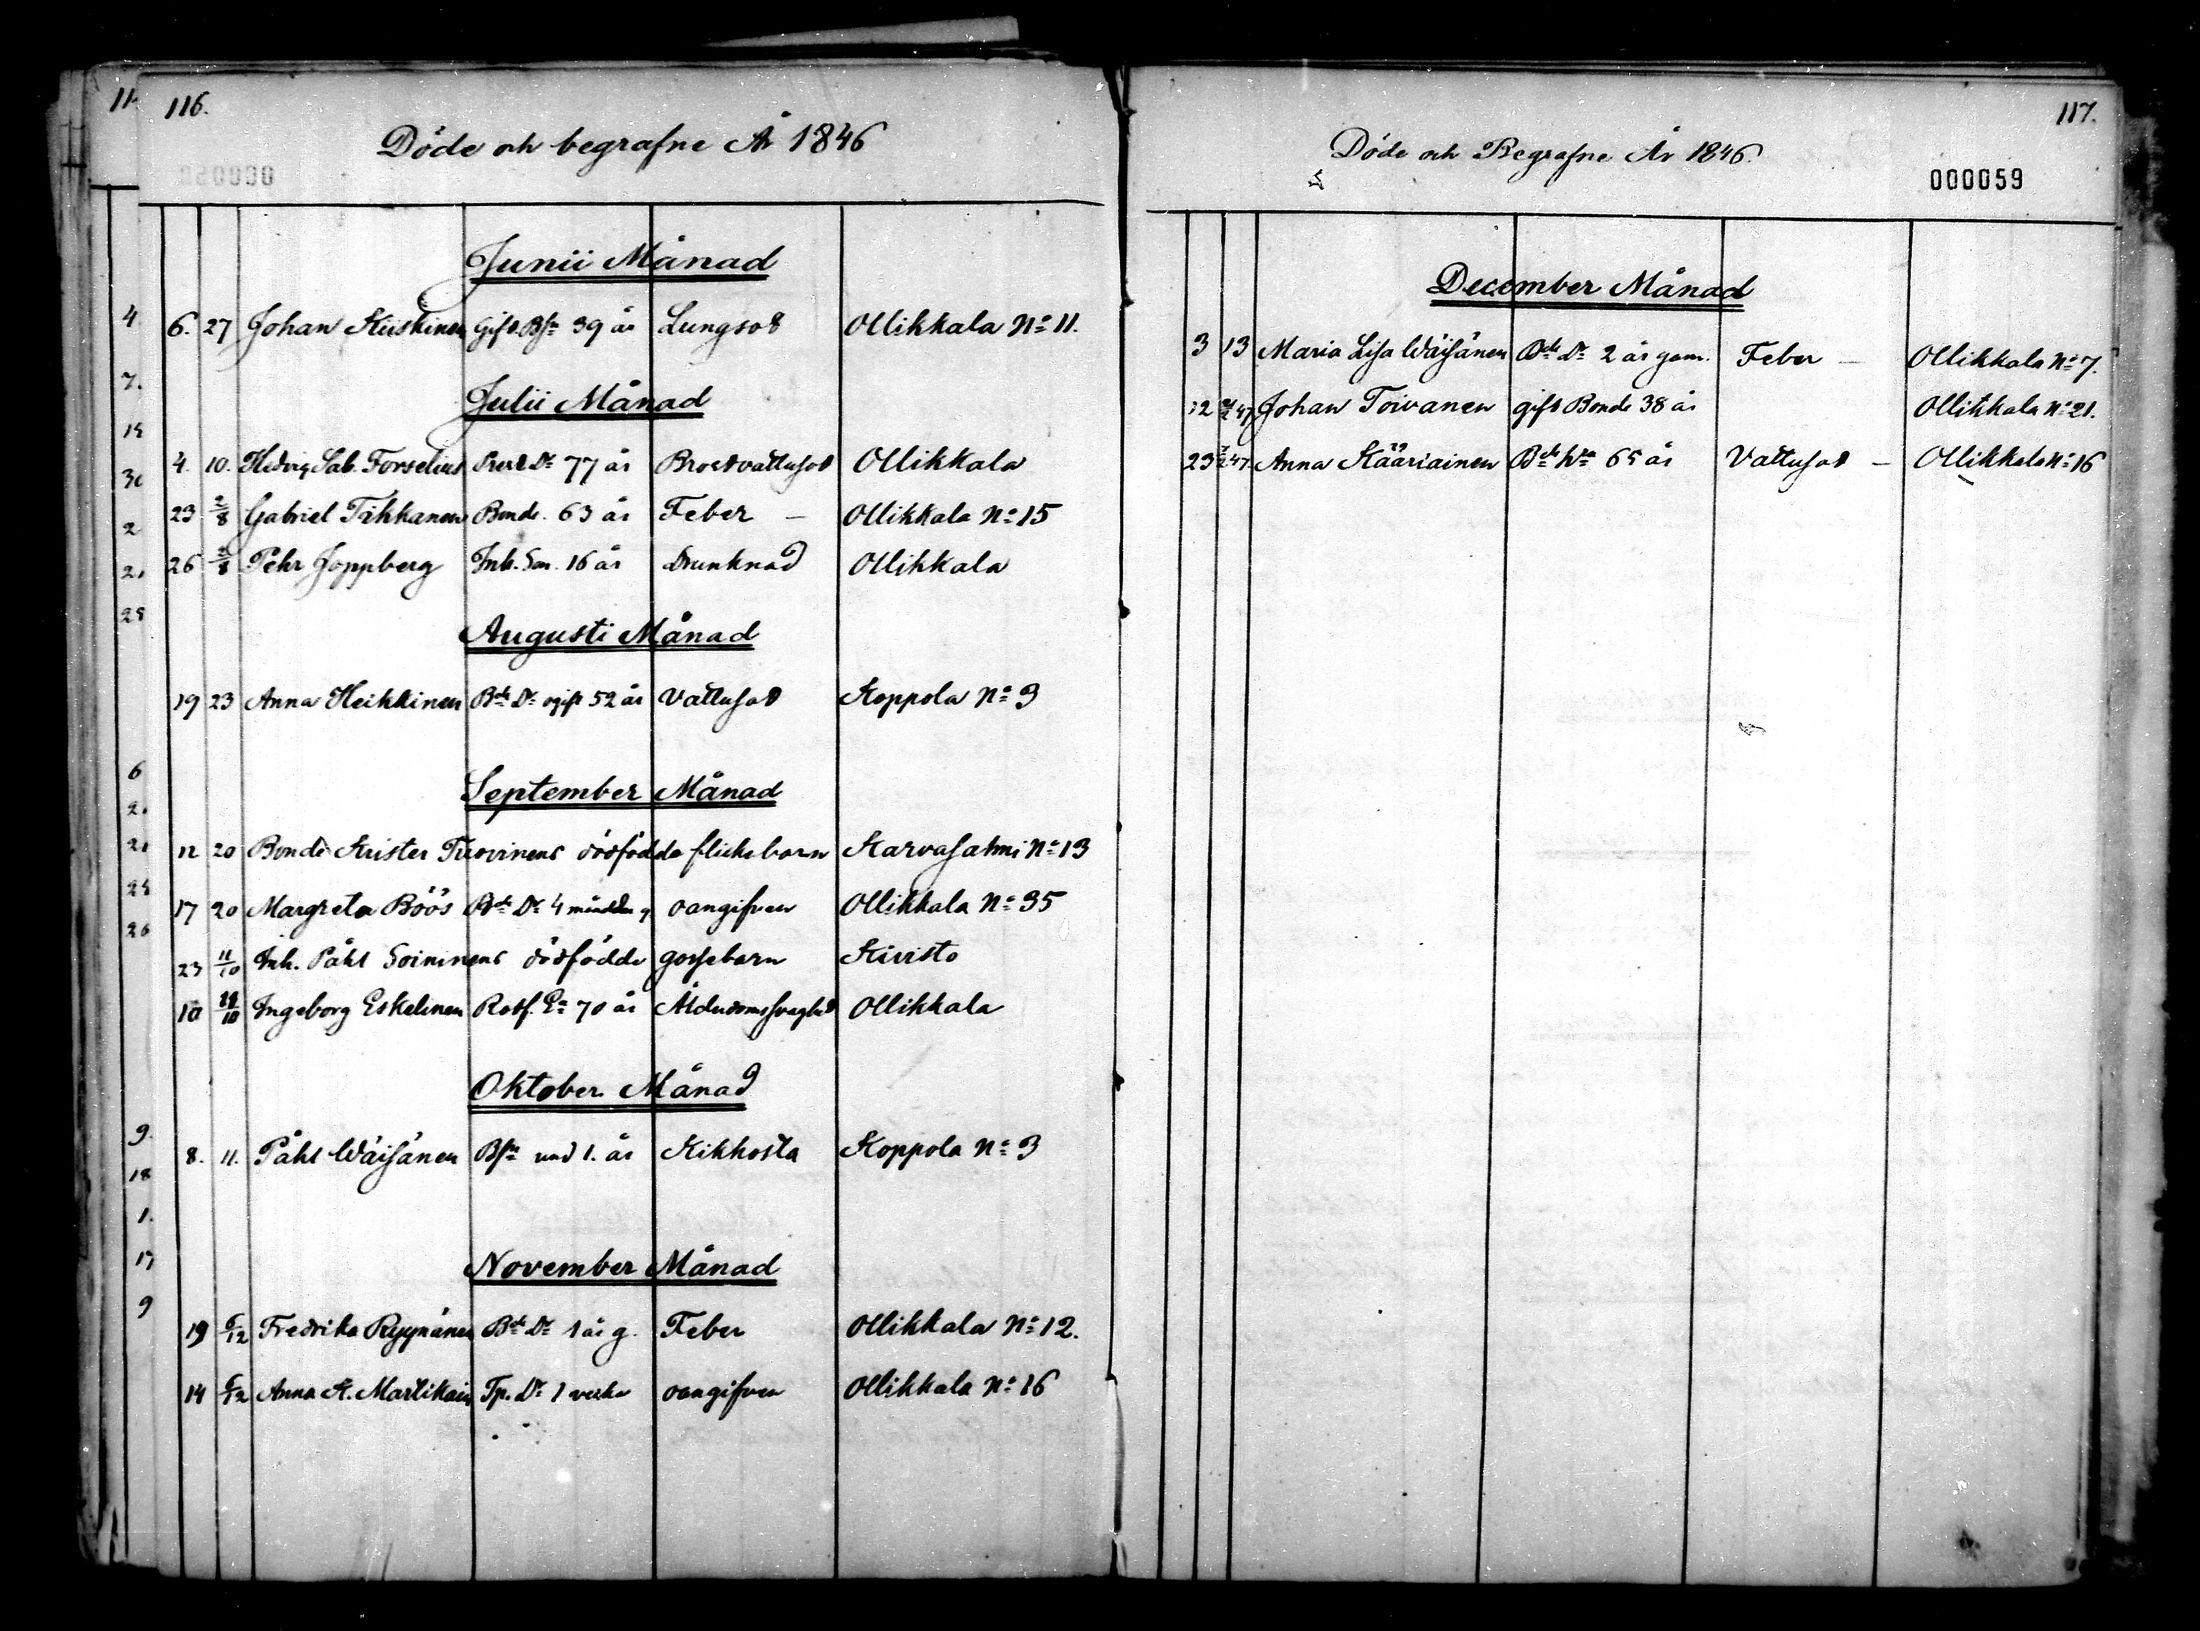 116.
Döde och begrafne År 1846
Junii Månad
6. 27 Johan Kiiskinen Gift Bſn 39 år Lungsot Ollikkala No 11.
Julii Månad
4. 10. Hedvig Sab. Forselius Prest Dr 77 år Brostvattusot Ollikkala
23 2/8 Gabriel Tikkanen Bonde. 63 år Feber — Ollikkala No 15
26 2/8 Pehr Joppberg Inh. Son. 16 år Drunknad Ollikkala
Augusti Månad
19 23 Anna Heikkinen Bde Dr ogift 52 år Vattusot Koppola No 3
September Månad
12 20 Bonde Krister Turvinens dödfödda flickebarn Karvasalmi No 13
17 20 Margreta Böös Bde Dr 4 månader g oangifven Ollikkala No 35
23 11/10 Inh. Påhl Soininens dödfödde gossebarn Kivisto
10 /10 Ingeborg Eskelinen Rotf. Ea 70 år Ålderdomssvaghet Ollikkala
Oktober Månad
8. 11. Påhl Wäisänen Bſn und 1. år Kikhosta Koppola No 3
November Månad
19 6/12 Fredrika Ryynänen Bde Dr 1 år g. Feber Ollikkala No 12.
14 6/12 Anna K. Martikain Tp. Dr 1 vecka oangifven Ollikkala No 16
117.
Döde och Begrafne År 1846.
000059
December Månad
3 13 Maria Lisa Wäisänen Bde Dr 2 år gam. Feber — Ollikkala No 7.
12 47 Johan Toivanen gift Bonde 38 år Ollikkala No 21.
23 47. Anna Kääriainen Bde Hru 65 år Vattusot — Ollikkala No 16